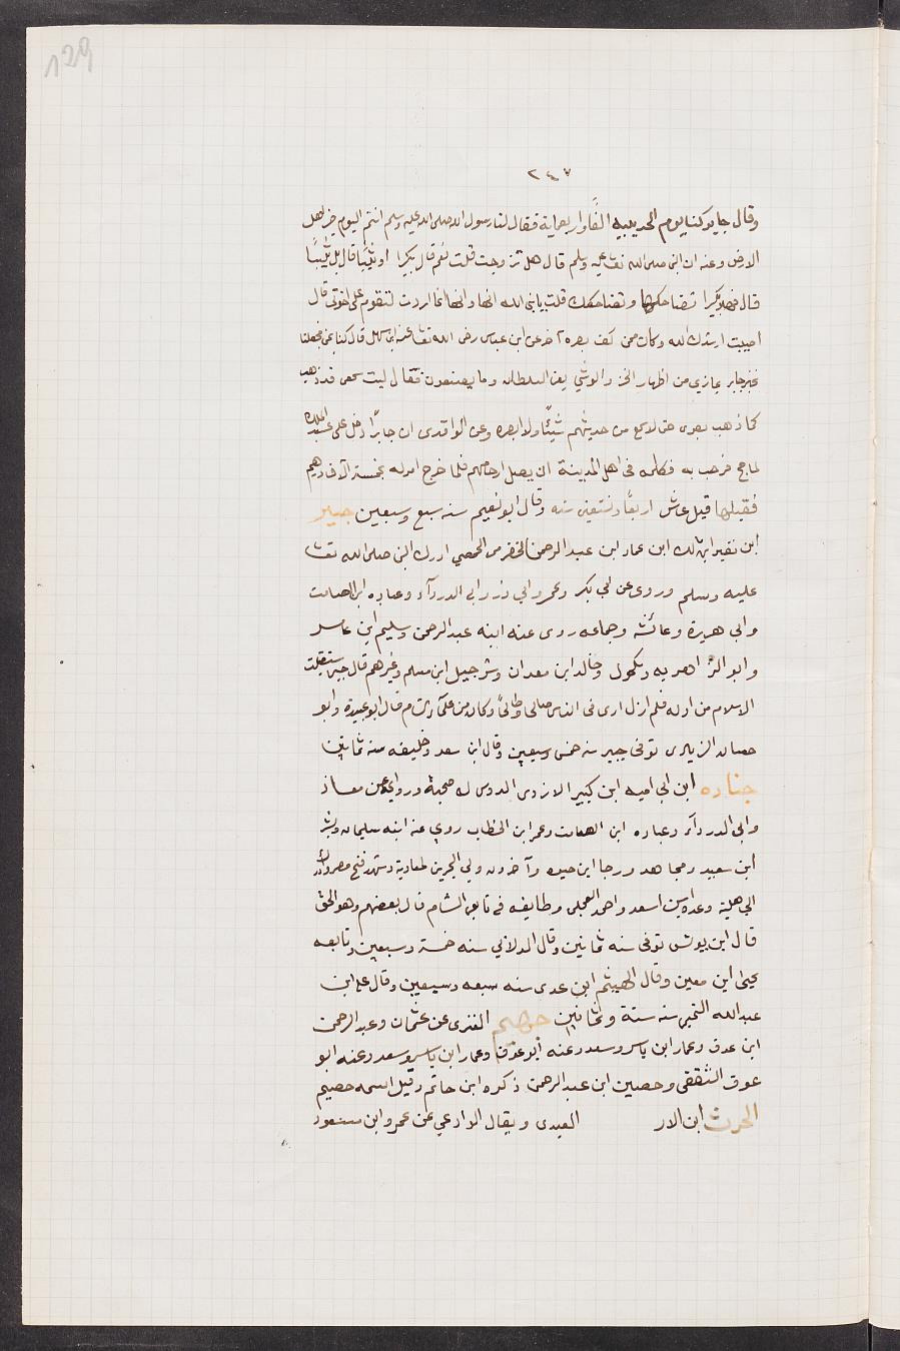 129
٢٤٧
وقال جابر كنا يوم الحديبيه الفا واربعماية فقال لنا رسول الله صلى الله عليه وسلم انتم اليوم خير اهل
الارض وعنه ان النبى صلى الله عليه وسلم قال هل تزوجت قلت نعم قال بكرا او ثيبا قال بل ثيبا
قال فهلا بكرا تضاحكها وتضاحكك قلت يا نبى الله انما اردت لتقوم على اخوتى قال
اصبت ارشدك الله وكان ممن كف بصره عن ابن عباس رضى الله قال كنا
جابر من اظهار الخز والوشي السلطان وما يصنعون فقال ليت سمعى قد ذهب
كما ذهب بصرى حتى لا اسمع من حديثهم شيئا ولا ابصره وعن الواقدى ان جابرا دخل على عبد الملك
لما حج فرحب به فكلمه فى اهل المدينة ان يصل ارحامهم فلما خرج امر له بخمسة الاف درهم
فقبلها قيل عاش اربعا وتسعين سنه وقال ابو نعيم سنه سبع وسبعين جبير
ابن نفير ابن مالك ابن عمار ابن عبد الرحمن الحضرمى الحمصي ادرك النبى صلى الله
عليه وسلم وروى عن ابى بكر وعمر وابي ذر وابى الدردآء وعباده ابن الصامت
وابى هريرة وعائشه وجماعه روى عنه ابنه عبد الرحمن وسليم ابن عامر
وابو الزاهريه ومكحول وخالد ابن معدان وشرحبيل ابن مسلم وغيرهم قال جبير استقبلت
الاسلام من اوله فلم ازل ارى فى الناس صالحا وطالحا وكان من علمآء الشام قال ابو عبيدة وابو
حسان الزيادى توفى جبير سنه خمس وسبعين وقال ابن سعد وخليفه سنه ثمانين
جناده ابن ابى اميه ابن كبير الازدى الدوسى له صحبة وروايه عن معاذ
وابى الدردآء وعباده ابن الصامت وعمر ابن الخطاب روى عنه ابنه سليمان وبشر
ابن سعيد ومجاهد ورجا ابن حيوه وآخرون ولى البحرين لمعاوية وشهد فتح مصر وادرك
الجاهلية وعده ابن سعد واحمد العجلى وطايفه فى تابعى الشام قال بعضهم وهو الحق
قال ابن يونس توفى سنه ثمانين وقال المدائنى سنه خمسة وسبعين وتابعه
يحيى ابن معين وقال الهيثم ابن عدى سنه سبعه وسبعين وقال على ابن
عبد الله التميمى سنه ستة وثمانين العنزى عن عثمان وعبد الرحمن
ابن عوف وعمار ابن ياسر وسعد وعنه ابو عوف وعمار ابن ياسر وسعد وعنه ابو
عوف الثقفى وحصين ابن عبد الرحمن ذكره ابن حاتم وقيل اسمه حصيم
الحرث ابن الار العبدى ويقال الوادعي عن عمر وابن مسعود